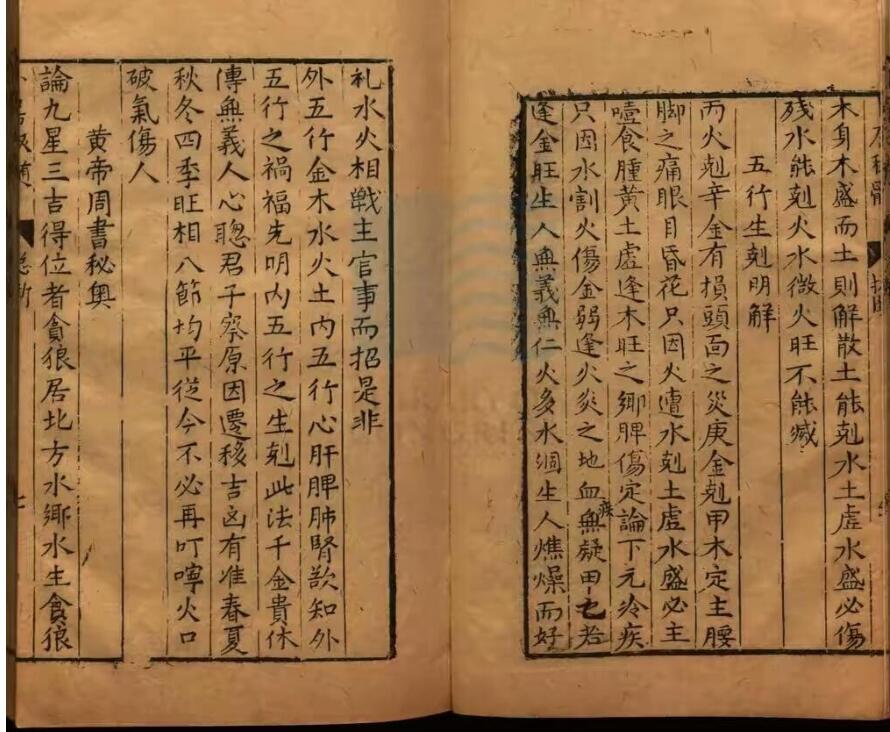 木身木盛而土則解散土能剋水土虛水盛必傷
残水能剋火水微火旺不能滅
五行生剋明解
丙火剋辛金有損頭面之災庚金剋甲木定主腰
脚之痛眼目昏花只因火遭水剋土虛水盛必主
噎食腫黄土虛逢木旺之鄉脾傷定論下元冷疾
只因水割火傷金弱逢火炎之地血疾無疑田七若
逢金旺生人無義無仁火多水涸生人燋燥而好
礼水火相戰主官事而招是非
外五行金木水火土内五行心肝脾肺腎欲知外
五行之禍福先明内五行之生剋此法千金貴休
傳無義人心聰君子察原因遷移吉凶有准春夏
秋冬四季旺相八節均平從今不必再叮嚀火口
破氣傷人
黄帝周書秘奥
論九星三吉得位者貪狼居北方水鄉水生貪狼